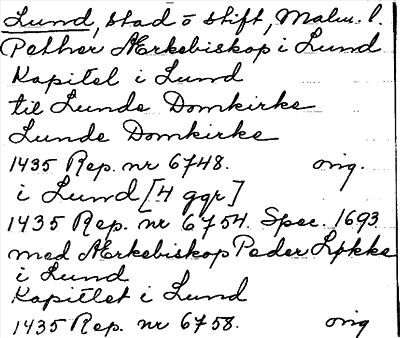 Lund, stad o stift, Malm. l.
Pether Ærkebiskop i Lund
Kapitel i Lund
til Lunde Domkirke
Lunde Domkirke
1435 Rep. nr 6748. orig.
i Lund [4 ggr]
1435 Rep. nr 6754. Spec. 1693
med Ærkebiskop Peder Lykke
i Lund
Kapitlet i Lund
1435 Rep. nr 6758. orig